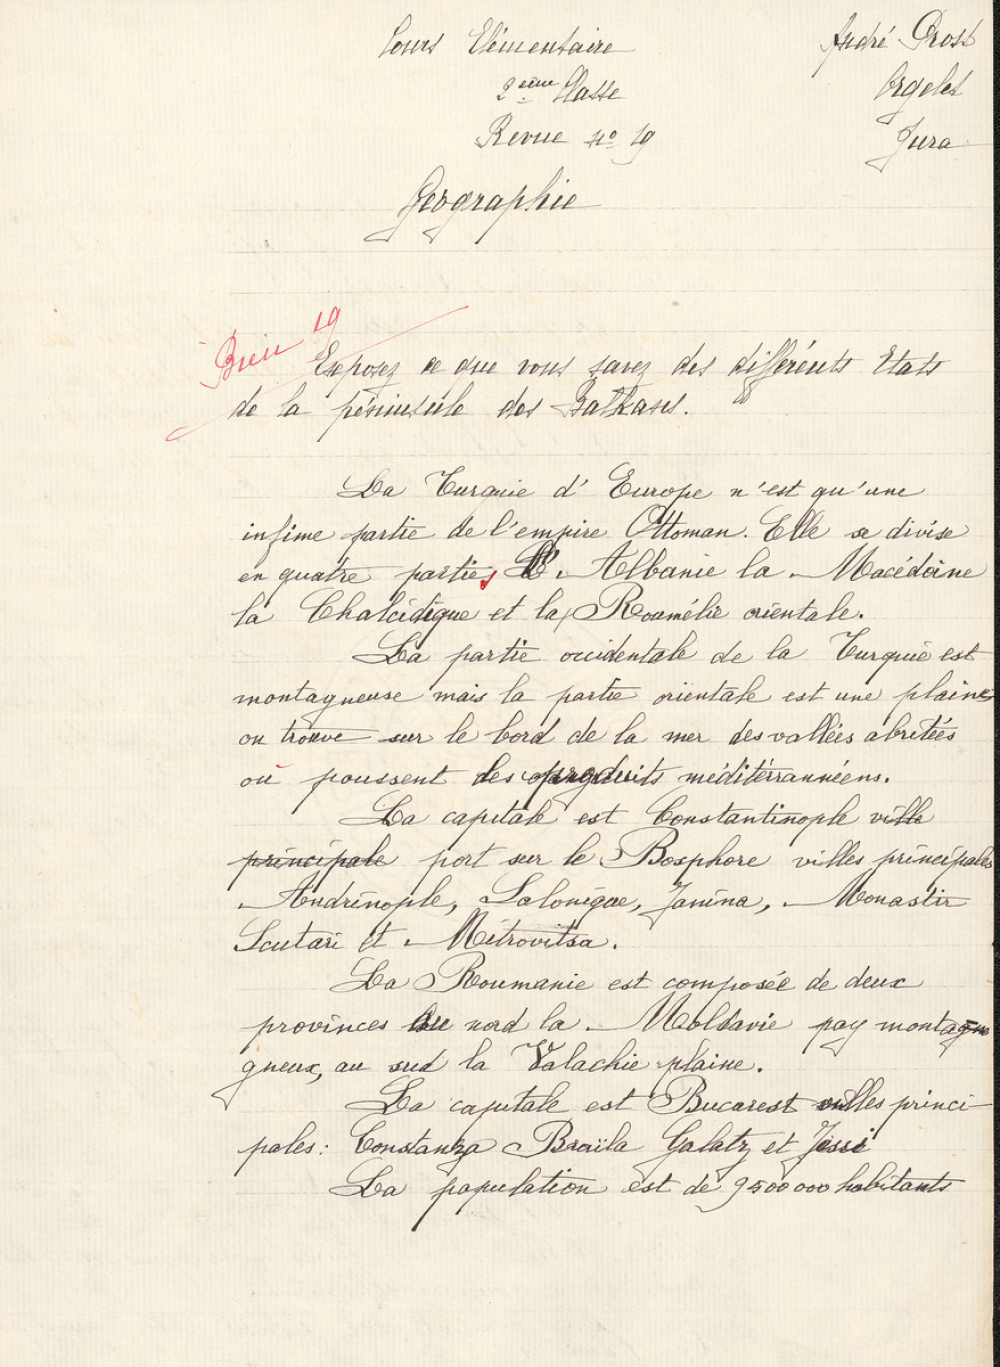 Cours Elémentaire
André Prost
2ème Classe
Orgelet
Revue nº 19
Jura
Géographie
Bien 19
Exposez ce que vous savez des différents Etats
de la péninsule des Balkans.
La Turquie d'Europe n'est qu'une
infime partie de l'empire Ottoman. Elle se divise
en quatre parties L'Albanie la Macédoine
la Chalcidique et la Roumélie orientale.
La partie occidentale de la Turquie est
montagneuse mais la partie orientale est une plaine
on trouve sur le bord de la mer des vallées abritées
où poussent des produits méditérrannéens.
La capitale est Constantinople ville
principale port sur le Bosphore villes principales
Andrinople, Salonique, Janina, Monastir
Scutari et Mitrovitsa.
La Roumanie est composée de deux
provinces au nord la Moldavie pay montagn
gneux, au sud la Valachie plaine.
La capitale est Bucarest villes princi-
pales: Constanza Braïla Galatz et Jessi
La population est de 9500000 habitants